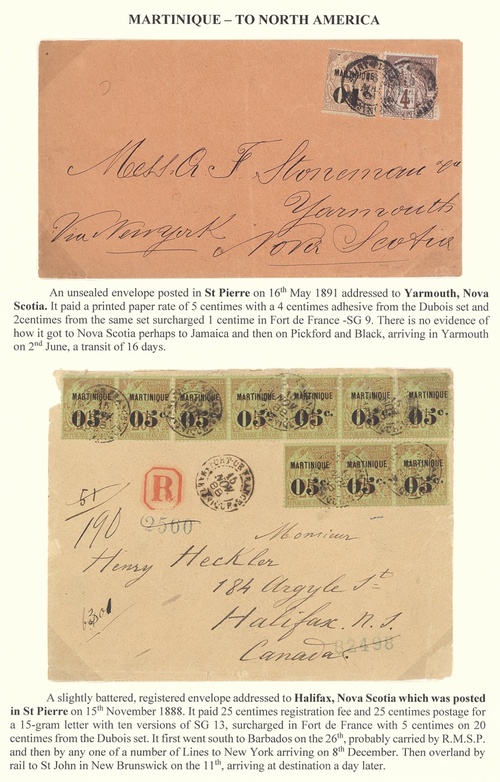 MARTINIQUE – TO NORTH AMERICA
MARTINIQUE
01
4
Mess. A F Stoneman & Co
Yarmouth
Via Newyork
Nova Scotia
An unsealed envelope posted in St Pierre on 16th May 1891 addressed to Yarmouth, Nova
Scotia. It paid a printed paper rate of 5 centimes with a 4 centimes adhesive from the Dubois set and
2centimes from the same set surcharged 1 centime in Fort de France -SG 9. There is no evidence of
how it got to Nova Scotia perhaps to Jamaica and then on Pickford and Black, arriving in Yarmouth
on 2nd June, a transit of 16 days.
MARTINIQUE MARTINIQUE MARTINIQUE MARTINIQUE MARTINIQUE MARTINIQUE MARTINIQUE
05c. 05c. 05c. 05c. 05c. 05c. 05c.
MARTINIQUE MARTINIQUE MARTINIQUE
05c. 05c. 05c.
R
FORT-DE-FRANCE
15
NOV
88
MARTINIQUE
51
190
2560
Monsieur
Henry Heckler
184 Argyle St
Halifax. N.S.
Canada.
82498
A slightly battered, registered envelope addressed to Halifax, Nova Scotia which was posted
in St Pierre on 15th November 1888. It paid 25 centimes registration fee and 25 centimes postage for
a 15-gram letter with ten versions of SG 13, surcharged in Fort de France with 5 centimes on 20
centimes from the Dubois set. It first went south to Barbados on the 26th, probably carried by R.M.S.P.
and then by any one of a number of Lines to New York arriving on 8th December. Then overland by
rail to St John in New Brunswick on the 11th, arriving at destination a day later.